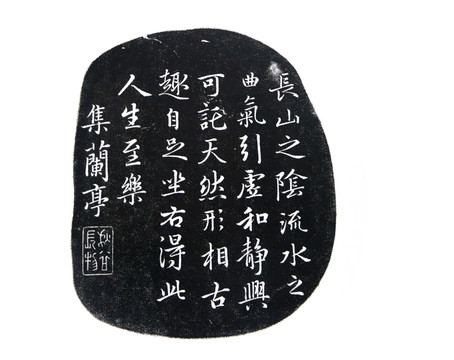 長山之陰流水之
曲氣引虛和靜興
可託天然形相古
趣自足坐右得此
人生至樂
集蘭亭
秋谷
長物